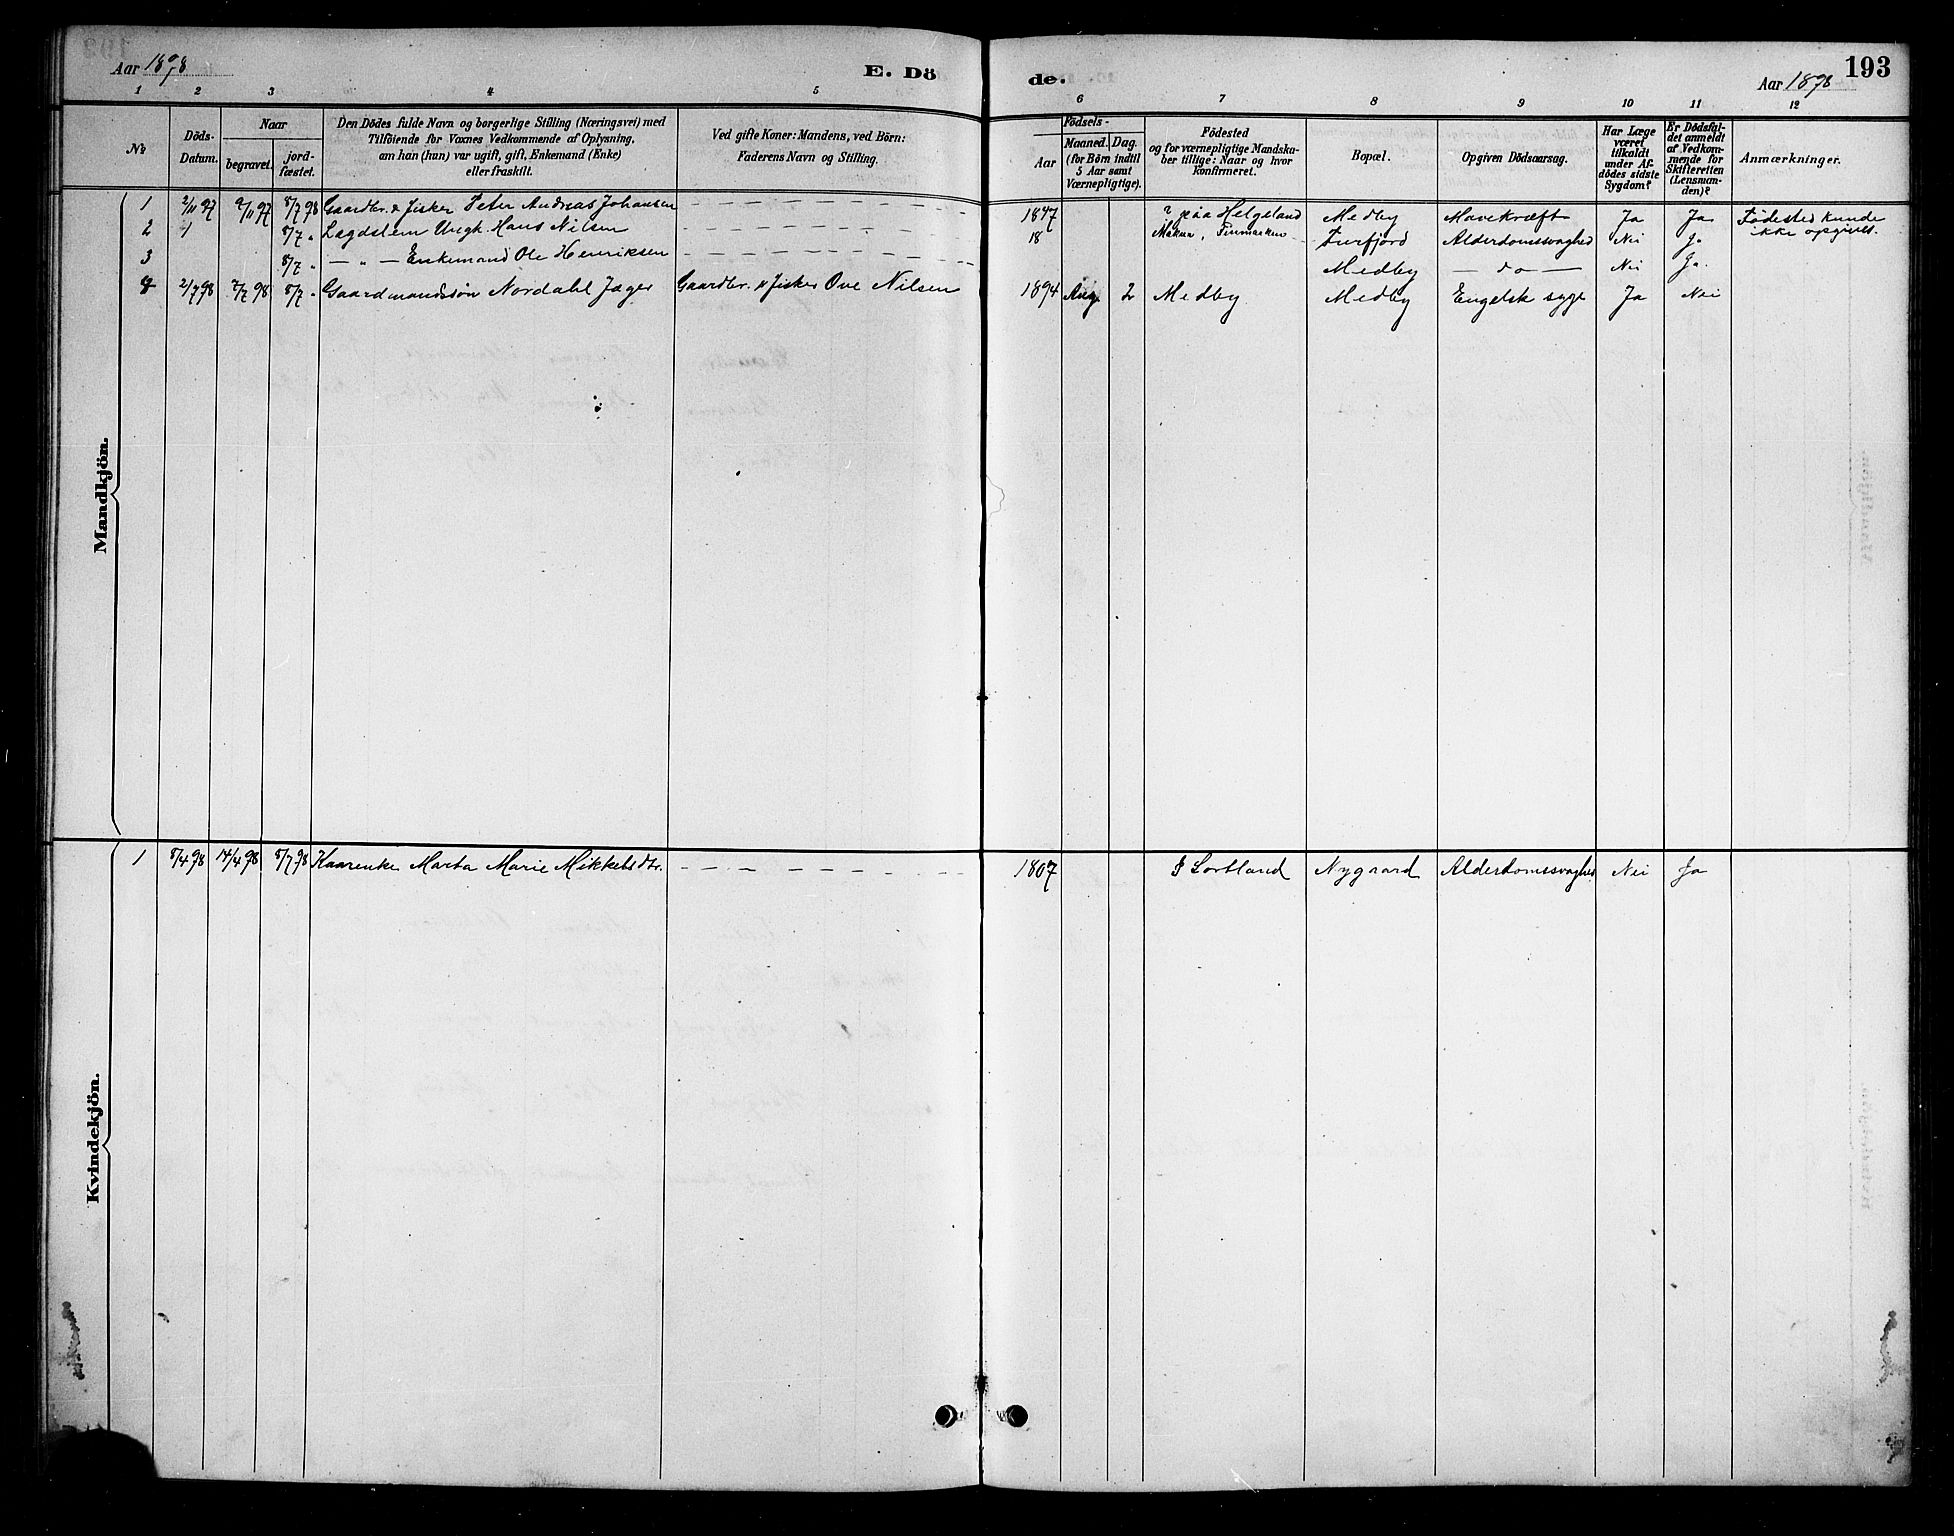 Aar 1898
E. Dö
de.
Aar 1898
193
1 2 3 4 5 6 7 8 9 10 11 12
No
Döds-
Datum.
Naar
begravet.
jord-
fæstet.
Den Dödes fulde Navn og borgerlige Stilling (Næringsvei) med
Tilföiende for Voxnes Vedkommende af Oplysning,
om han (hun) var ugift, gift, Enkemand (Enke)
eller fraskilt.
Ved gifte Koner: Mandens, ved Börn:
Faderens Navn og Stilling.
Födsels-
Aar
Maaned. Dag.
(for Börn indtil
5 Aar samt
Værnepligtige).
Födested
og for værnepligtige Mandska-
ber tillige: Naar og hvor
konfirmeret.
Bopæl.
Opgiven Dödsaarsag.
Har Læge
været
tilkaldt
under Af-
dödes sidste
Sygdom?
Er Dödsfal-
det anmeldt
af Vedkom-
mende for
Skifteretten
(Lensman-
den)?
Anmærkninger.
Mandkjön.
1 2/11 97 9/11 97 8/7 98 Gaardbr. & Fisker Peter Andreas Johansen 1847 ? paa Helgeland Medby Mavekræft Ja Ja Födested kunde
ikke opgives.
2 8/7 „ Lægdslem Ungk. Hans Nilsen 18 Finmarken Furfjord Alderdomssvaghed Nei Ja
3 8/7 „ — „ — Enkemand Ole Henriksen Medby — do — Nei Ja.
4 2/7 98 7/7 98 8/7 „ Gaardmandssön Nordahl Jager Gaardbr. & Fisker Ove Nilsen 1894 Aug. 2 Medby Medby Engelsk syge Ja Nei
Kvindekjön.
1 8/4 98 14/4 98 8/7 98 Kaarenke Marta Marie Mikkelsdtr. 1807 Sortland Nygaard Alderdomssvaghed Nei Ja